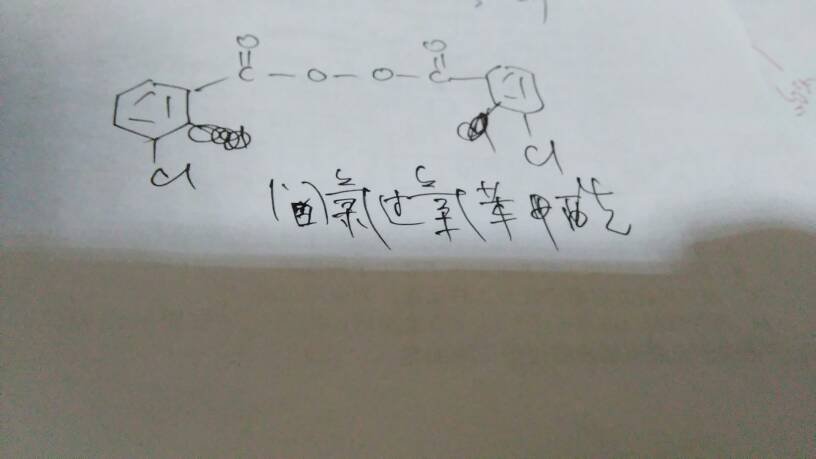 O O
C - O - O - C
Cl Cl
间氯过氧苯甲酸